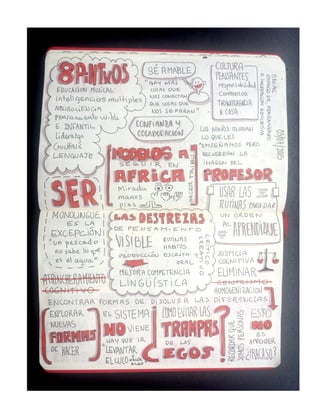 8 PUNTOS
EDUCACIÓN MUSICAL
Inteligencias múltiples
Pensamiento visible
E. INFANTIL
Liderazgo
LENGUAJE
SÉ AMABLE
"HAY MÁS
COSAS QUE
NOS CONECTAN
QUE COSAS QUE
NOS SEPARAN"
CONFIANZA Y
COLABORACIÓN
CULTURA
PENSANTES
responsabilidad
TRANSFERENCIA
A CASA
LOS NIÑOS OLVIDAN
LO QUE LES
ENSEÑAMOS PERO
RECUERDAN LA
IMAGEN DEL
PROFESOR
MODELOS A
SEGUIR EN
AFRICA
Mirada
manos
pies
HACER TRIBU
SER
MONOLINGÜE
ES LA
EXCEPCIÓN
"un pescado
no sabe lo que
es el agua"
ATRINCHERAMIENTO
COGNITIVO
LAS DESTREZAS
DE PENSAMIENTO
VISIBLE
RUTINAS
HÁBITOS
PRODUCCIÓN ESCRITA Y
ORAL
MEJORA COMPETENCIA
LINGÜÍSTICA
CRÍTICO
CREATIVO
USAR LAS
RUTINAS PARA DAR
UN ORDEN
AL APRENDIZAJE
JUSTICIA
COGNITIVA
ELIMINAR
HOMOGENIZACIÓN
ENCONTRAR FORMAS DE DISOLVER LAS DIFERENCIAS
EXPLORAR
NUEVAS
FORMAS
DE HACER
EL SISTEMA
NO VIENE
HAY QUE IR
"LEVANTAR
EL CULO
¿CÓMO EVITAR LAS
TRAMPAS
DE LOS
EGOS?
RECORDAR QUE
SOMOS PERSONAS
ESTO
NO
ES
APRENDER
¿FRACASO?